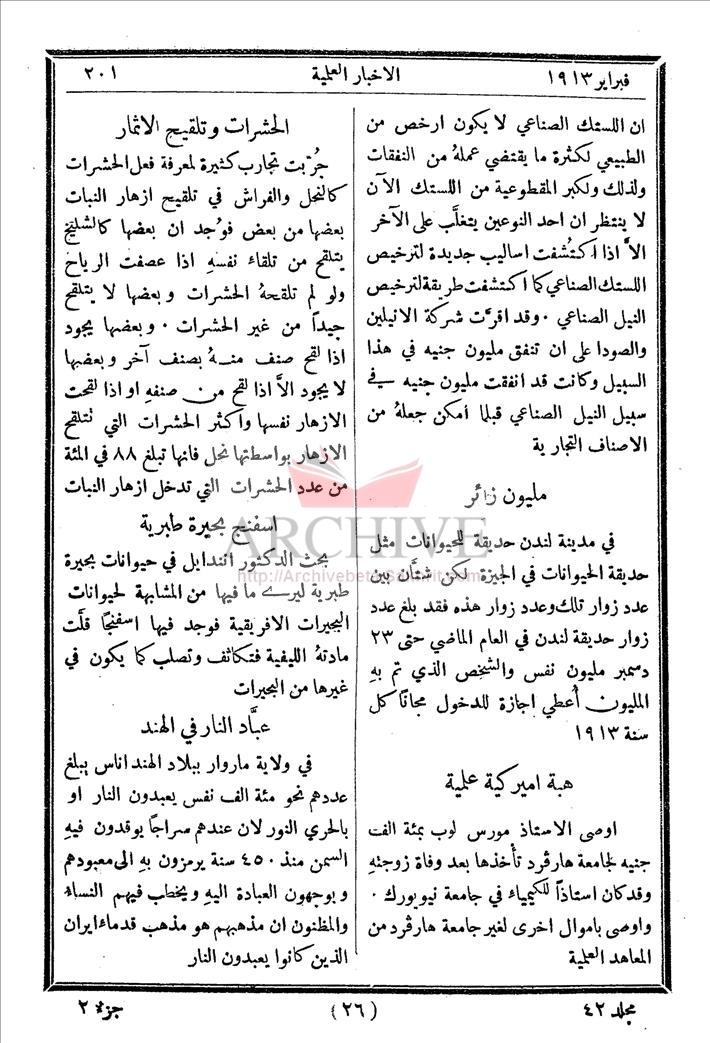 فبراير ١٩١٣
الاخبار العلمية
٢٠١
ان اللستك الصناعي لا يكون ارخص من
الطبيعي لكثرة ما يقتضي عملهُ من النفقات
ولذلك ولكبر المقطوعية من اللستك الآن
لا ينتظر ان احد النوعين يتغلَّب على الآخر
الاَّ اذا اكتُشفت اساليب جديدة لترخيص
اللستك الصناعي كما اكتشفت طريقة لترخيص
النيل الصناعي . وقد اقرَّت شركة الانيلين
والصودا على ان تنفق مليون جنيه في هذا
السبيل وكانت قد انفقت مليون جنيه في
سبيل النيل الصناعي قبلما أمكن جعلهُ من
الاصناف التجارية
مليون زائر
في مدينة لندن حديقة للحيوانات مثل
حديقة الحيوانات في الجيزة لكن شتَّان بين
عدد زوار تلك وعدد زوار هذه فقد بلغ عدد
زوار حديقة لندن في العام الماضي حتى ٢٣
دسمبر مليون نفس والشخص الذي تم بهِ
المليون أُعطي اجازة للدخول مجانًا كل
سنة ١٩١٣
هبة اميركية علمية
اوصى الاستاذ مورس لوب بمئة الف
جنيه لجامعة هارڤرد تأخذها بعد وفاة زوجتهِ
وقد كان استاذًا للكيمياء في جامعة نيويورك .
واوصى باموال اخرى لغير جامعة هارڤرد من
المعاهد العلمية
الحشرات وتلقيح الاثمار
جُرّبت تجارب كثيرة لمعرفة فعل الحشرات
كالنحل والفراش في تلقيح ازهار النبات
بعضها من بعض فوُجد ان بعضها كالشليخ
يتلقح من تلقاء نفسهِ اذا عصفت الرياح
ولو لم تلقحهُ الحشرات وبعضها لا يتلقح
جيدًا من غير الحشرات . وبعضها يجود
اذا لقح صنف منهُ بصنف آخر وبعضها
لا يجود الاَّ اذا لقح من صنفهِ او اذا لقحت
الازهار نفسها واكثر الحشرات التي تتلقح
الازهار بواسطتها نحل فانها تبلغ ٨٨ في المئة
من عدد الحشرات التي تدخل ازهار النبات
اسفنج بحيرة طبرية
بحث الدكتور انندايل في حيوانات بحيرة
طبرية ليرى ما فيها من المشابهة لحيوانات
البحيرات الافريقية فوجد فيها اسفنجًا قلَّت
مادتهُ الليفية فتكاثف وتصلب كما يكون في
غيرها من البحيرات
عبَّاد النار في الهند
في ولاية ماروار ببلاد الهند اناس يبلغ
عددهم نحو مئة الف نفس يعبدون النار او
بالحري النور لان عندهم سراجًا يوقدون فيهِ
السمن منذ ٤٥٠ سنة يرمزون بهِ الى معبودهم
ويوجهون العبادة اليهِ ويخطب فيهم النساءُ
والمظنون ان مذهبهم هو مذهب قدماء ايران
الذين كانوا يعبدون النار
مجلد ٤٢
(٢٦)
جزء ٢
ARCHIVE